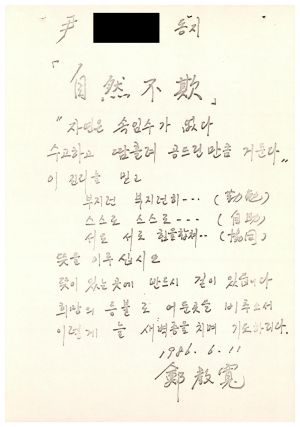 尹 동지
「自然不欺」
"자연은 속임수가 없다
수고하고 땀흘려 공드린만큼 거둔다"
이 진리를 믿고
부지런 부지런히--- (勤勉)
스스로 스스로--- (自助)
서로 서로 힘을합쳐-- (協同)
뜻을 이루십시오
뜻이 있는곳에 반드시 길이 있습니다
희망의 등불로 어둔곳을 비추소서
이렇게 늘 새벽종을 치며 기도하리다.
1986. 6. 11
鄭教寬